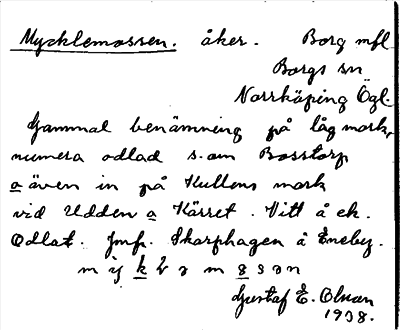 Mycklemossen. åker. Borg mfl
Borgs sn
Norrköping Ögl.
Gammal benämning på låg mark,
numera odlad s. om Bosstorp
o även in på Kullens mark
vid Udden o Kärret. Vitt å ek.
Odlat. Jmfr. Skarphagen å Eneby.
Gustaf E. Olsson
1938.